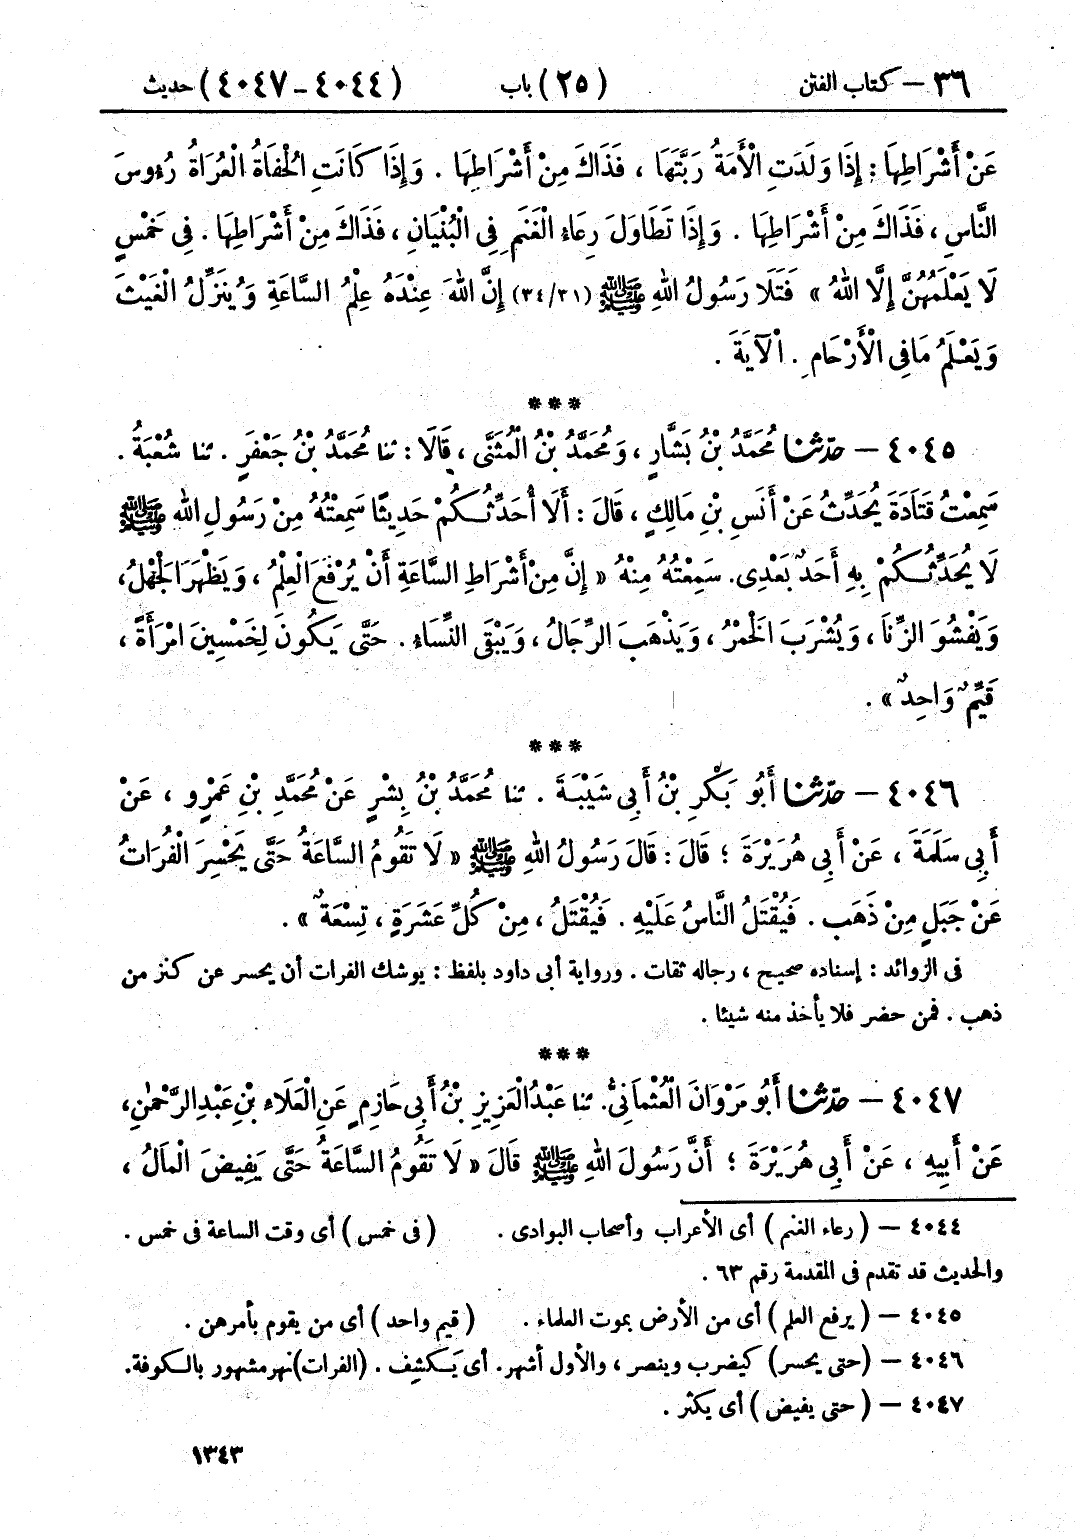 ٣٦ – كتاب الفتن (٢٥) باب (٤٠٤٤ – ٤٠٤٧) حديث
عَنْ أَشْرَاطِهَا : إِذَا وَلَدَتِ الْأَمَةُ رَبَّتَهَا ، فَذَاكَ مِنْ أَشْرَاطِهَا . وَإِذَا كَانَتِ الْحُفَاةُ الْعُرَاةُ رُءُوسَ
النَّاسِ ، فَذَاكَ مِنْ أَشْرَاطِهَا . وَإِذَا تَطَاوَلَ رِعَاءُ الْغَنَمِ فِي الْبُنْيَانِ ، فَذَاكَ مِنْ أَشْرَاطِهَا . فِي خَمْسٍ
لَا يَعْلَمُهُنَّ إِلَّا اللهُ » فَتَلَا رَسُولُ اللهِ ﷺ (٣٤/٣١) إِنَّ اللهَ عِنْدَهُ عِلْمُ السَّاعَةِ وَيُنَزِّلُ الْغَيْثَ
وَيَعْلَمُ مَا فِي الْأَرْحَامِ . الْآيَةَ .
***
٤٠٤٥ – حدّثنا مُحَمَّدُ بْنُ بَشَّارٍ ، وَمُحَمَّدُ بْنُ الْمُثَنَّى ، قَالَا : ثنا مُحَمَّدُ بْنُ جَعْفَرٍ . ثنا شُعْبَةُ .
سَمِعْتُ قَتَادَةَ يُحَدِّثُ عَنْ أَنَسِ بْنِ مَالِكٍ ، قَالَ : أَلَا أُحَدِّثُكُمْ حَدِيثًا سَمِعْتُهُ مِنْ رَسُولِ اللهِ ﷺ
لَا يُحَدِّثُكُمْ بِهِ أَحَدٌ بَعْدِي. سَمِعْتُهُ مِنْهُ « إِنَّ مِنْ أَشْرَاطِ السَّاعَةِ أَنْ يُرْفَعَ الْعِلْمُ ، وَيَظْهَرَ الْجَهْلُ،
وَيَفْشُوَ الزِّنَا ، وَيُشْرَبَ الْخَمْرُ ، وَيَذْهَبَ الرِّجَالُ ، وَيَبْقَى النِّسَاءُ . حَتَّى يَكُونَ لِخَمْسِينَ امْرَأَةً ،
قَيِّمٌ وَاحِدٌ » .
***
٤٠٤٦ – حدّثنا أَبُو بَكْرِ بْنُ أَبِي شَيْبَةَ . ثنا مُحَمَّدُ بْنُ بِشْرٍ عَنْ مُحَمَّدِ بْنِ عَمْرٍو ، عَنْ
أَبِي سَلَمَةَ ، عَنْ أَبِي هُرَيْرَةَ ؛ قَالَ : قَالَ رَسُولُ اللهِ ﷺ « لَا تَقُومُ السَّاعَةُ حَتَّى يَحْسِرَ الْفُرَاتُ
عَنْ جَبَلٍ مِنْ ذَهَبٍ . فَيُقْتَلُ النَّاسُ عَلَيْهِ . فَيُقْتَلُ ، مِنْ كُلِّ عَشَرَةٍ ، تِسْعَةٌ » .
في الزوائد : إسناده صحيح ، رجاله ثقات . ورواية أبى داود بلفظ : يوشك الفرات أن يحسر عن كنز من
ذهب . فمن حضر فلا يأخذ منه شيئا .
***
٤٠٤٧ – حدّثنا أَبُو مَرْوَانَ الْعُثْمَانِيُّ. ثنا عَبْدُ الْعَزِيزِ بْنُ أَبِي حَازِمٍ عَنِ الْعَلَاءِ بْنِ عَبْدِ الرَّحْمٰنِ،
عَنْ أَبِيهِ ، عَنْ أَبِي هُرَيْرَةَ ؛ أَنَّ رَسُولَ اللهِ ﷺ قَالَ « لَا تَقُومُ السَّاعَةُ حَتَّى يَفِيضَ الْمَالُ ،
٤٠٤٤ – ( رعاء الغنم ) أى الأعراب وأصحاب البوادى . ( فى خمس ) أى وقت الساعة فى خمس .
والحديث قد تقدم فى المقدمة رقم ٦٣ .
٤٠٤٥ – ( يرفع العلم ) أى من الأرض بموت العلماء . ( قيم واحد ) أى من يقوم بأمرهن .
٤٠٤٦ – (حتى يحسر) كيضرب وينصر ، والأول أشهر. أى يَكشف . (الفرات) نهر مشهور بالكوفة.
٤٠٤٧ – ( حتى يفيض ) أى يكثر .
١٣٤٣